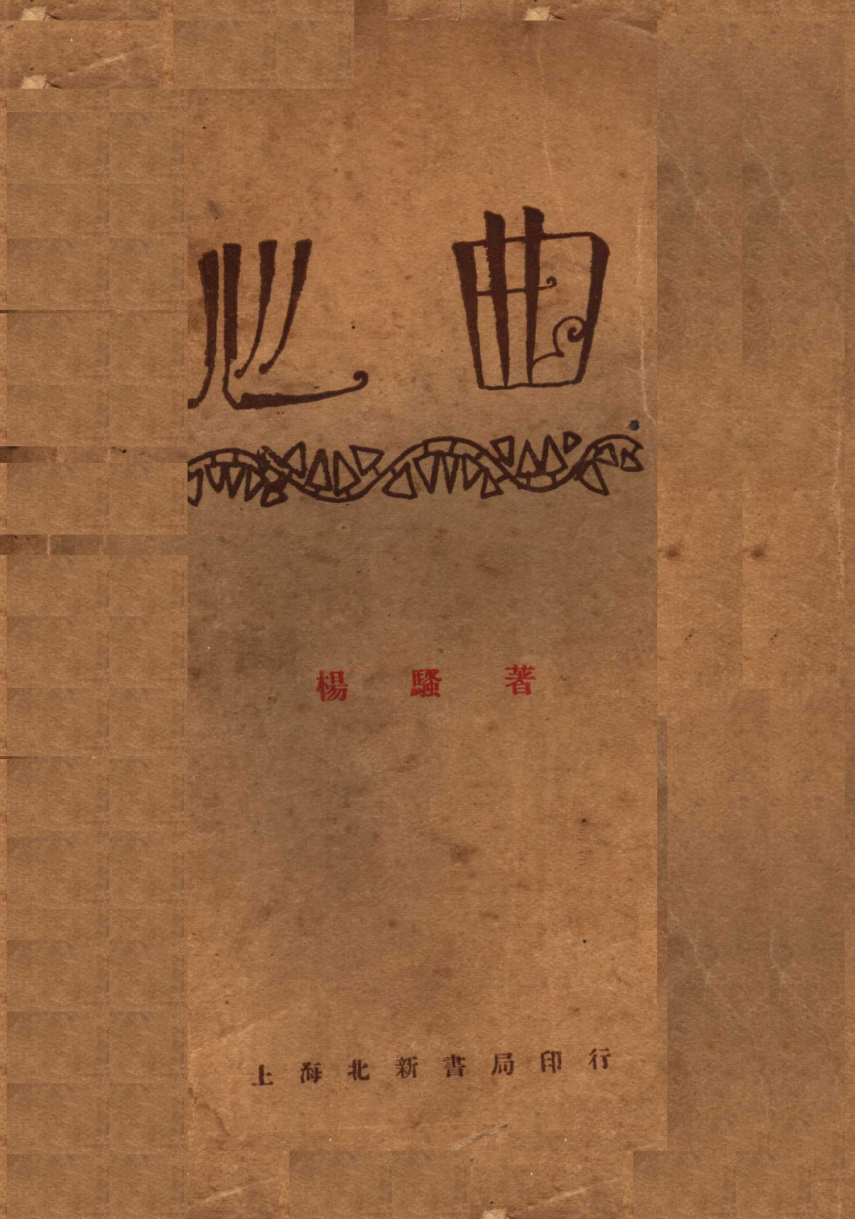 心曲
楊騷著
上海北新書局印行